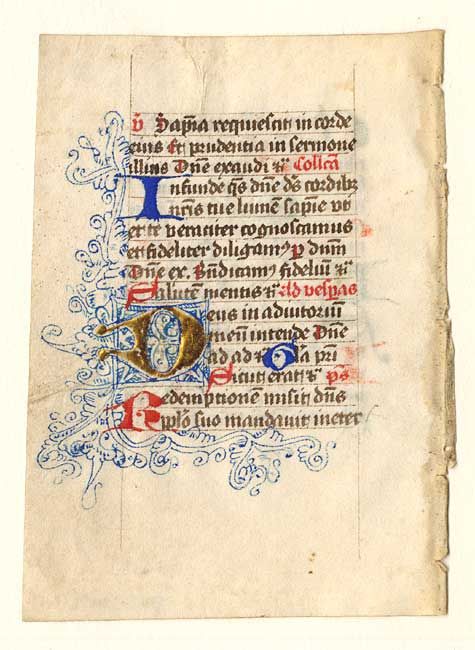 v̄ Sapīa requiescit in corde
eius Et prudentia in sermone
illius Dn̄e exaudi ꝛc̄ Collcā
Infunde q̄s dn̄e ds̄ cordibꝫ
nr̄is tue lumen sapīe vt
et te veraciter cognoscamus
et fideliter diligamꝰ p̱ dn̄m
Dn̄e ex. Bn̄dicamꝰ fideliū ꝛc̄
Salutem mentis ꝛc̄ Ad vesp̄as
Deus in adiutoriū
meū intende Dn̄e
ad ad ꝛc̄ Gl̄a pr̄i
Sicut erat ꝛc̄ p̄s
Redemptionem misit dn̄s
pp̄lo suo mandauit in eter